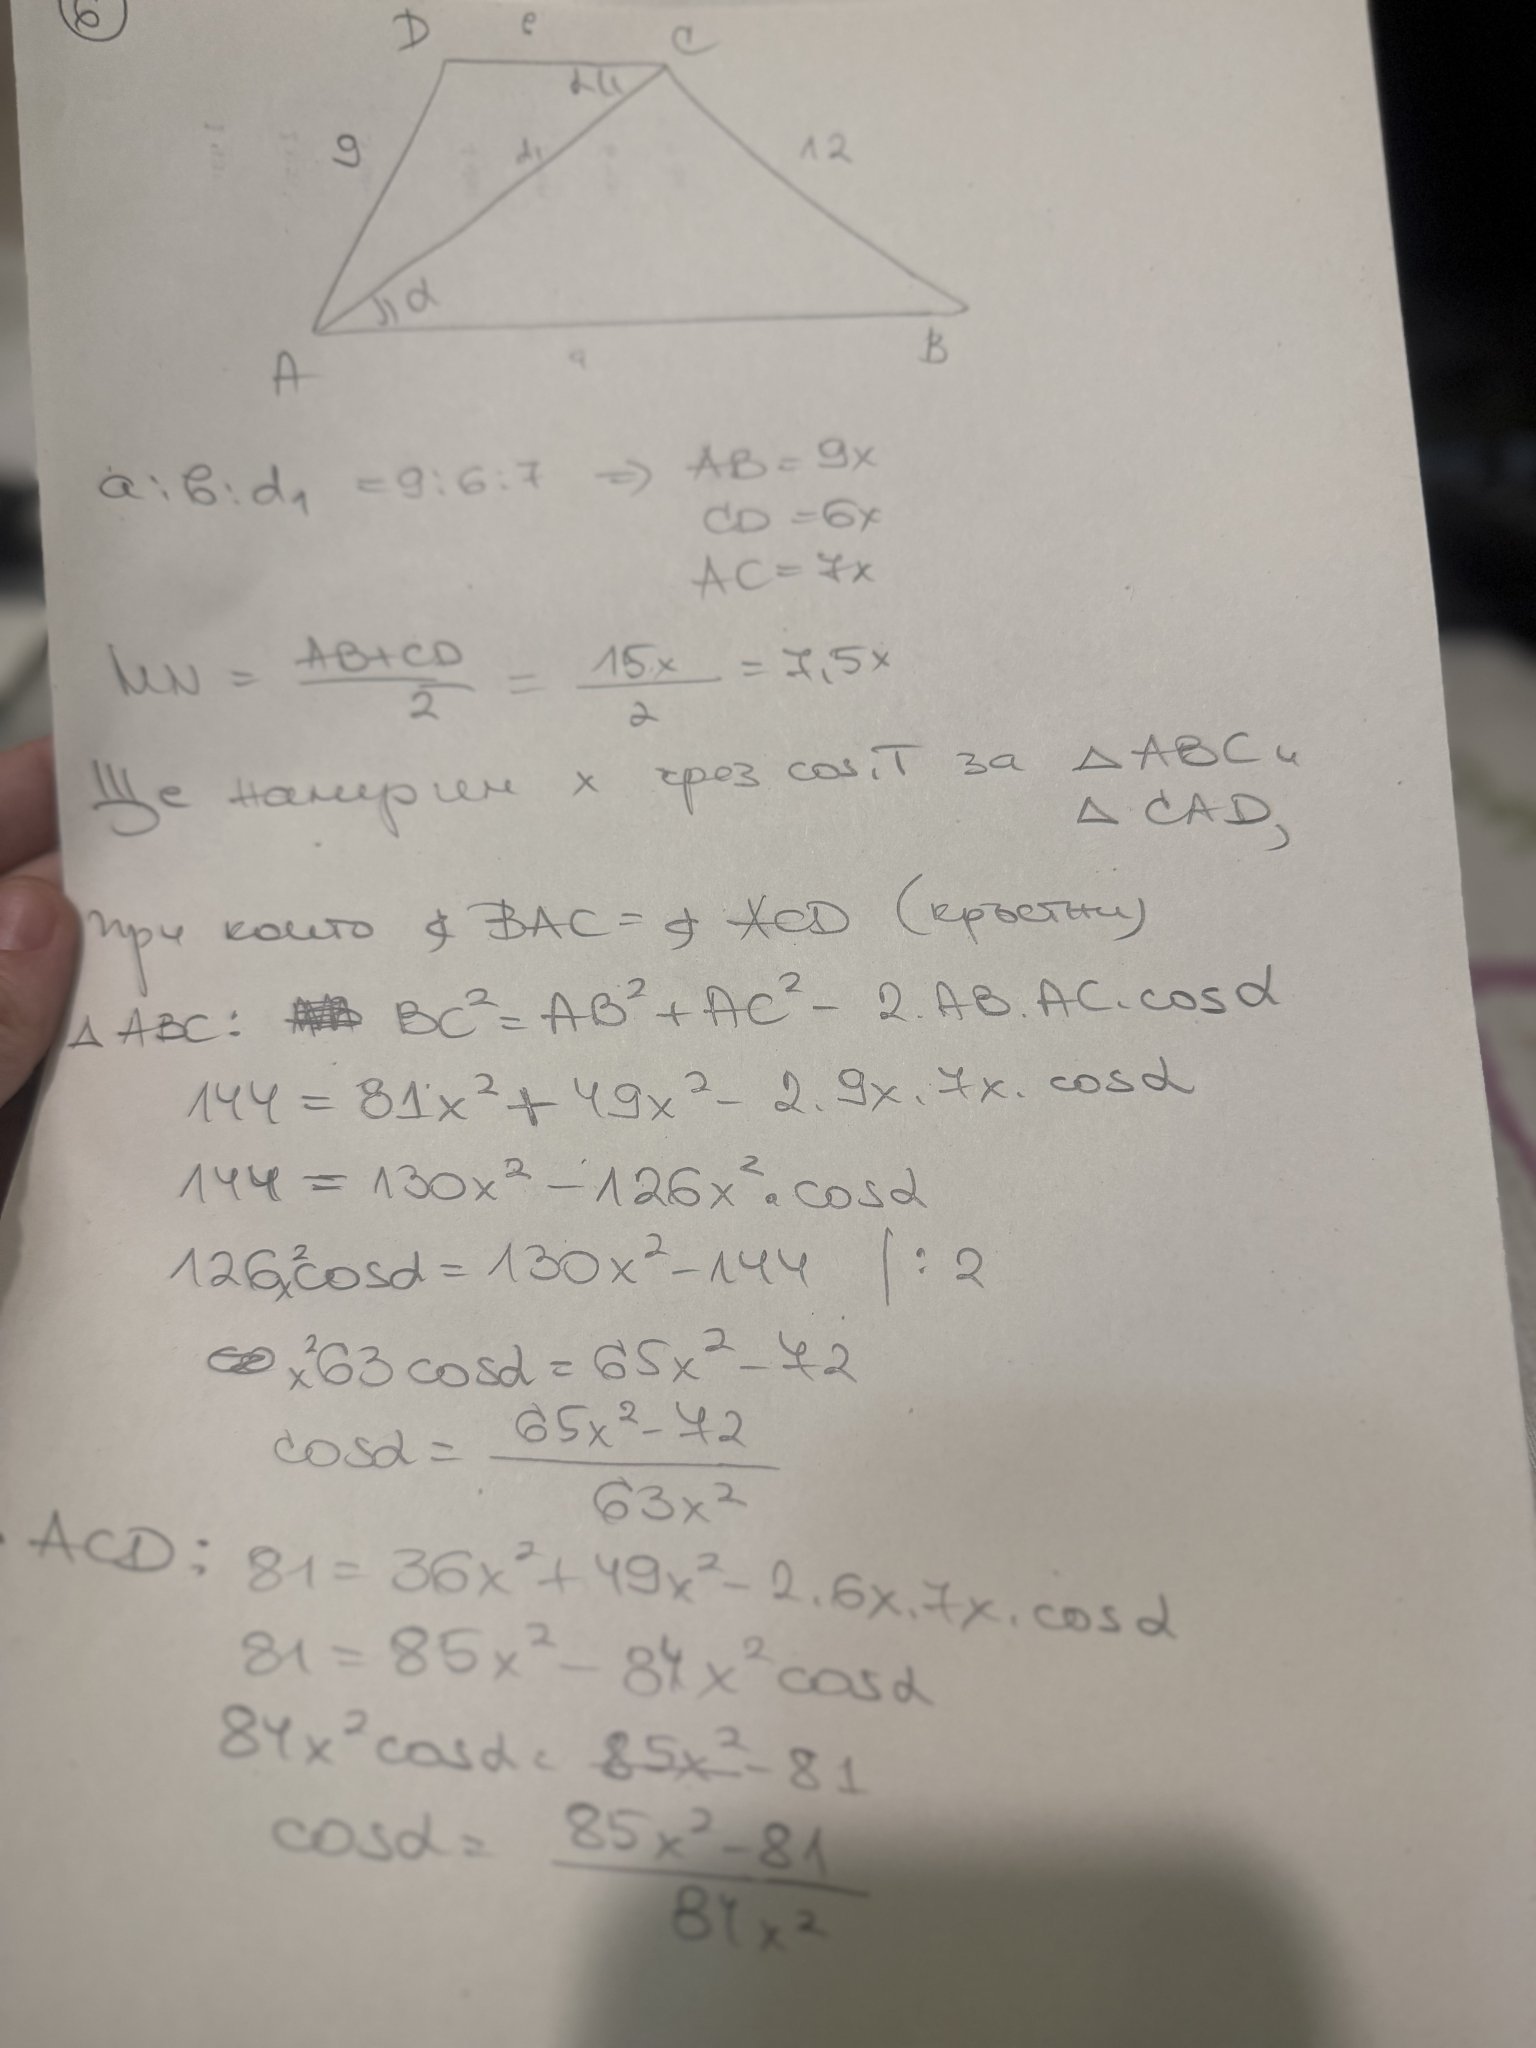 6
D в C
α
9 d₁ 12
α
A a B
a:в:d₁ = 9:6:7 => AB = 9x
CD = 6x
AC = 7x
MN = (AB+CD)/2 = 15x/2 = 7,5x
Ще намерим x чрез cos.T за △ABC и
△CAD,
при които ∢BAC = ∢ACD (кръстни)
△ABC: BC² = AB² + AC² - 2.AB.AC.cosα
144 = 81x² + 49x² - 2.9x.7x.cosα
144 = 130x² - 126x².cosα
126x²cosα = 130x² - 144 |:2
x²63cosα = 65x² - 72
cosα = (65x² - 72)/(63x²)
ACD: 81 = 36x² + 49x² - 2.6x.7x.cosα
81 = 85x² - 84x²cosα
84x²cosα = 85x² - 81
cosα = (85x² - 81)/(84x²)